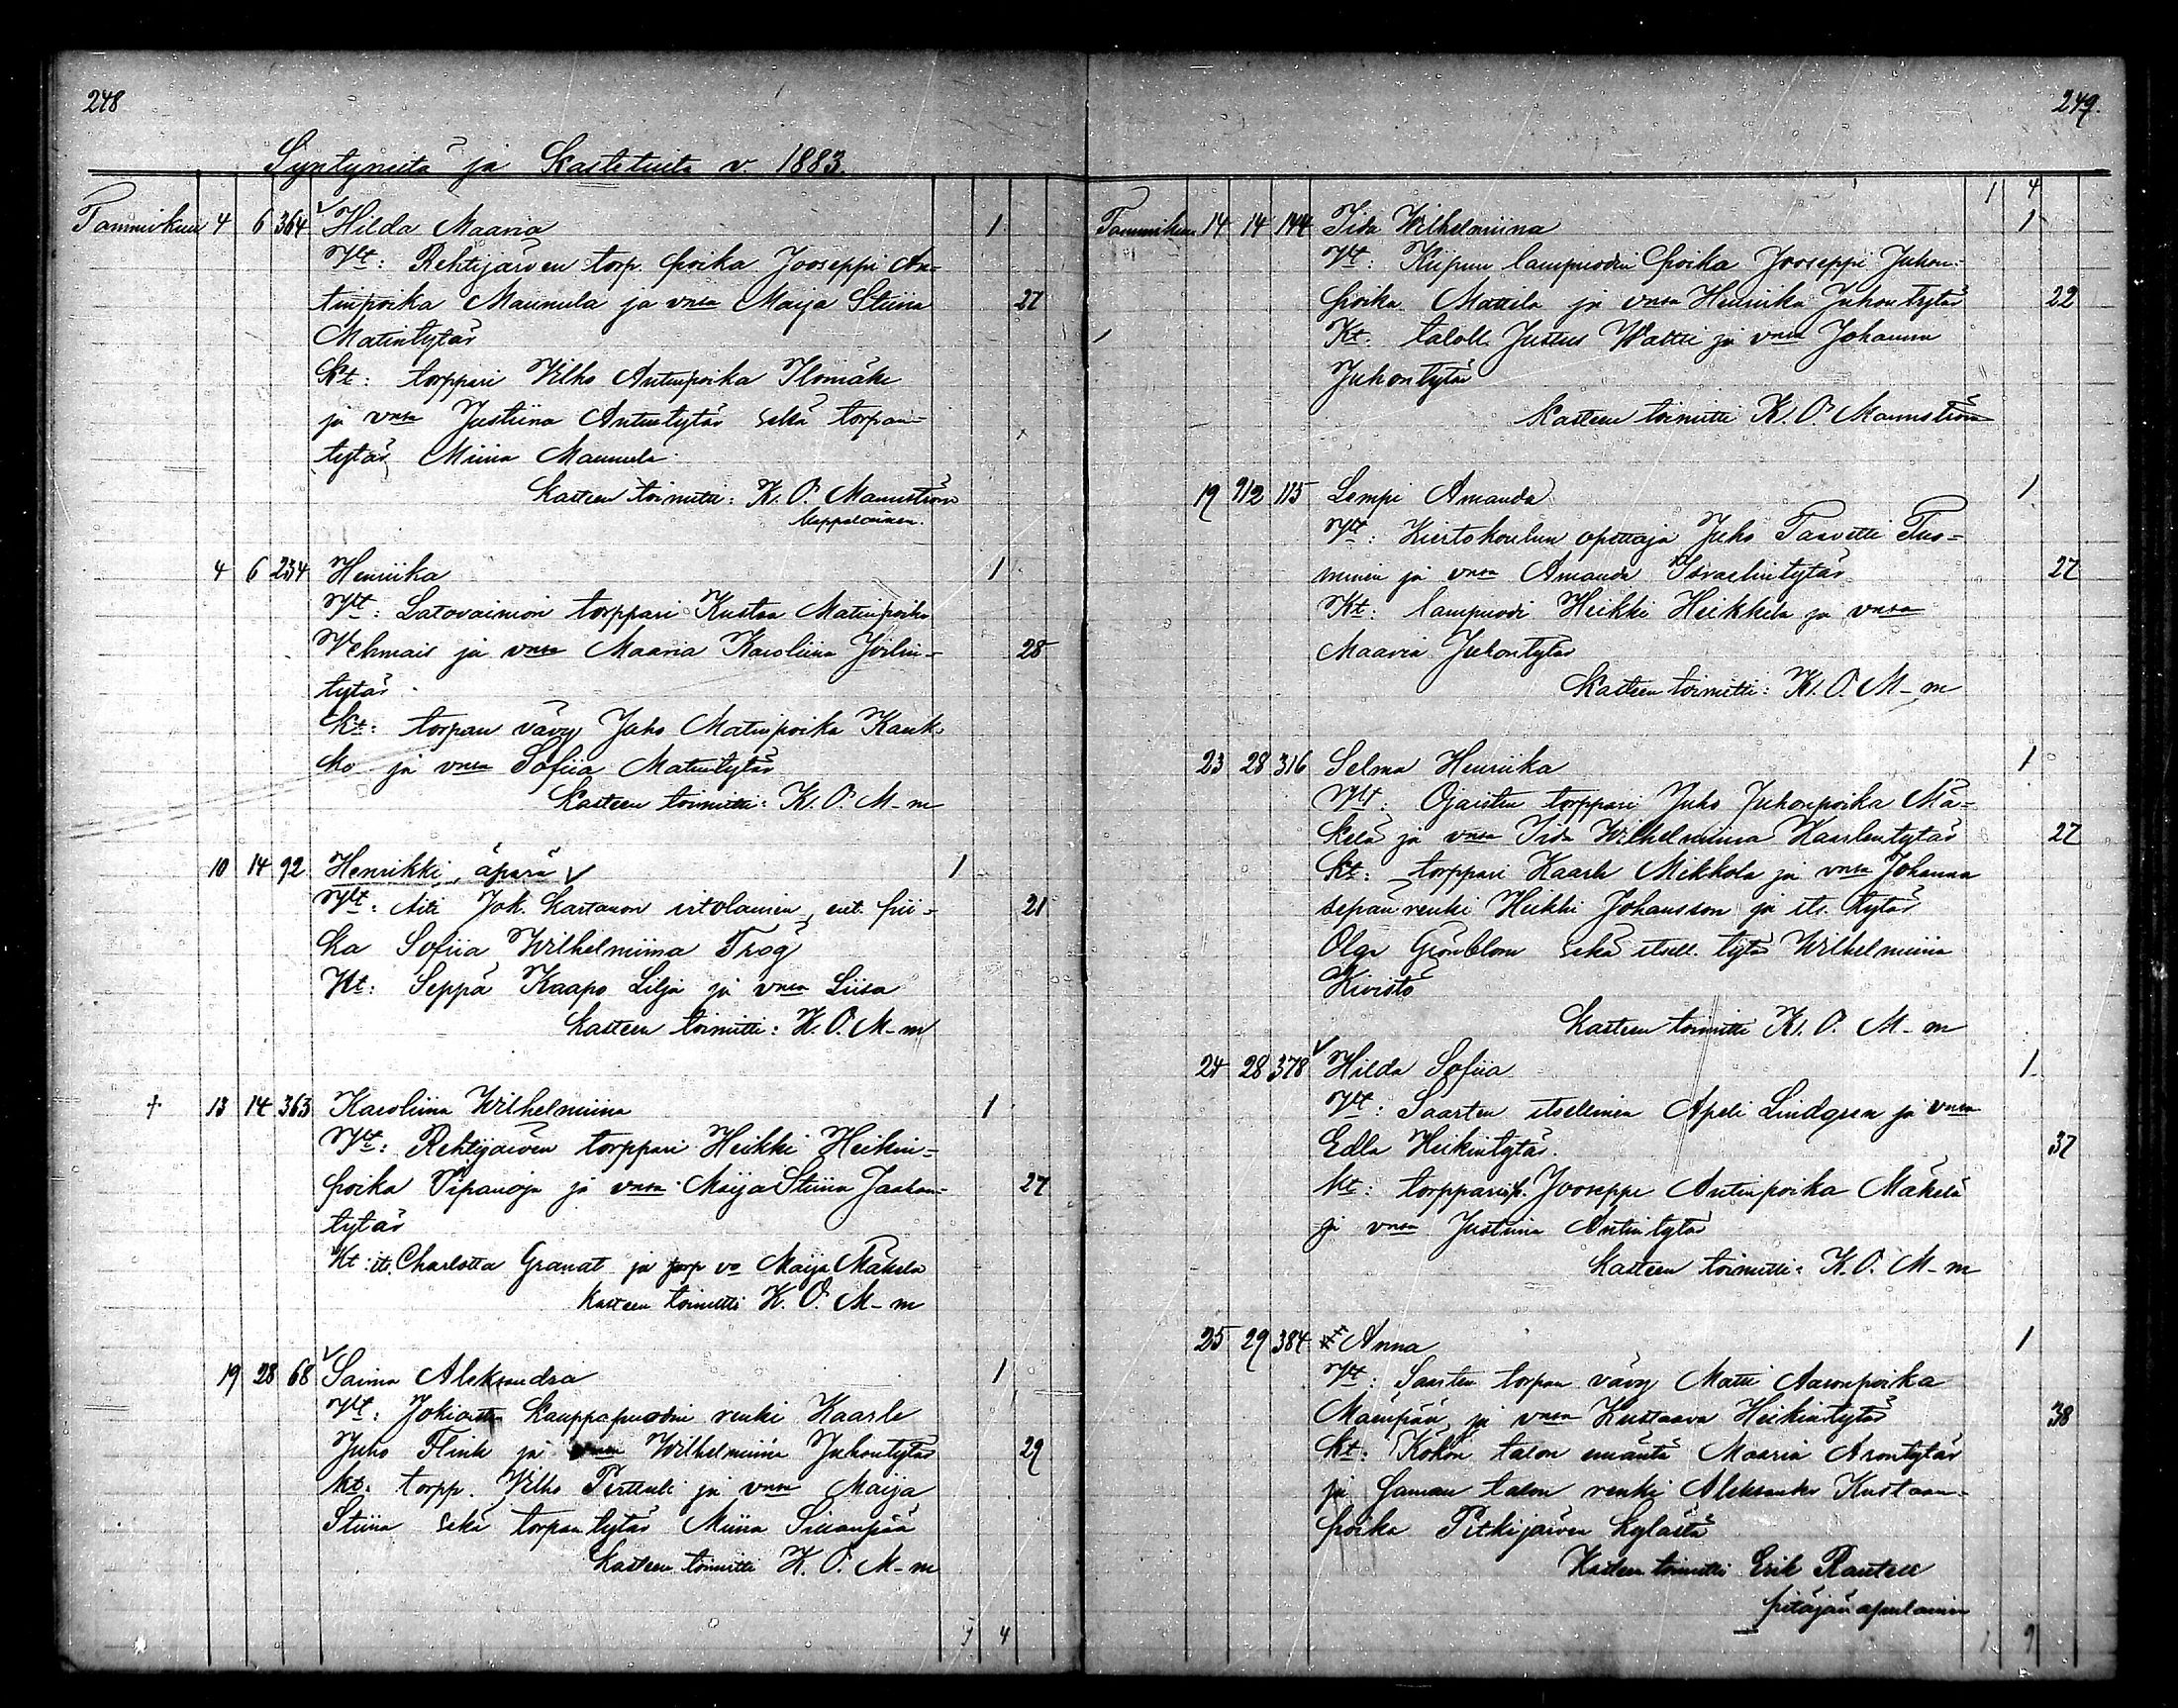 248
Syntyneitä ja Kastetuita v. 1883.
Tammikuu 4 6 364 Hilda Maaria 1
Vt: Rehtijärven torp. poika Jooseppi An-
tinpoika Maunula ja vmsa Maija Stiina 27
Matintytär
Kt: torppari Vilho Antinpoika Ilomäki
ja vmsa Justiina Antintytär sekä torpan-
tytär Miina Maunula
Kasteen toimitti: K. O. Mannström
kappalainen.
4 6 234 Henriika 1
Vt: Latovainion torppari Kustaa Matinpoika
Vehmais ja vmsa Maaria Karoliina
28
tytär
Kt: torpan vävy Juho Matinpoika Kauk-
ko ja vmsa Sofiia Matintytär
Kasteen toimitti: K. O. M-m
10 14 92 Henrikki, äpärä 1
Vt: Äiti Jok. Kartanon irtolainen, ent. pii- 21
ka Sofiia Wilhelmiina Trog
Kt: Seppä Kaapo Lilja ja vmsa Liisa
Kasteen toimitti: K. O. M-m
+ 13 14 363 Karoliina Wilhelmiina 1
Vt: Rehtijärven torppari Heikki Heikin-
poika Vipanoja ja vmsa Maija Stiina Jaakon- 27
tytär
Kt: its. Charlotta Granat ja torp vo Maija Mäkelä
Kasteen toimitti K. O. M-m
19 28 68 Saima Aleksandra 1
Vt: Jokioisten kauppapuodin renki Kaarle
Juho Flink ja vmsa Wilhelmiina Juhontytär 29
Kt: torpp. Vilho Perttuli ja vmsa Maija
Stiina sekä torpan tytär Miina Sillanpää
Kasteen toimitti K. O. M-m
1 4
249.
1 4
Tammikuu 14 14 144 Iida Wilhelmiina 1
Vt: Kiipun lampuodin poika Jooseppi Juhon-
poika Mattila ja vmsa Henriika Juhontytär 22
Kt: taloll. Justus Waltti ja vmsa Johanna
Juhontytär
Kasteen toimitti K. O. Mannström
19 9/2 115 Lempi Amanda 1
Vt: Kiertokoulun opettaja Juho Taavetti Tuo-
minen ja vmsa Amanda Israelintytär 27
Kt: lampuodi Heikki Heikkilä ja vmsa
Maaria Juhontytär
Kasteen toimitti: K. O. M-m
23 28 316 Selma Henriika 1
Vt: Ojaisten torppari Juho Juhonpoika Mä-
kelä ja vmsa Iida Wilhelmiina Kaarlentytär 27
Kt: torppari Kaarle Mikkola ja vmsa Johanna
sepän renki Heikki Johansson ja its. tytär
Olga Grönblom sekä itsell. tytär Wilhelmiina
Kivistö
Kasteen toimitti K. O. M-m
24 28 378 Hilda Sofiia 1
Vt: Saarten itsellinen Apeli Lindgren ja vmsa
Edla Heikintytär. 37
Kt: torpparinp. Jooseppi Antinpoika Mäkelä
ja vmsa Justiina Antintytär
Kasteen toimitti: K. O. M-m
25 29 384 Anna 1
Vt: Saarten torpan vävy Matti Aaronpoika
Mäenpää ja vmsa Kustaava Heikintytär 38
Kt: Kokon talon emäntä Maaria Arontytär
ja saman talon renki Aleksander Kustaan-
poika Pitkijärven kylästä
Kasteen toimitti Erik Rantell
pitäjän apulainen
1 9